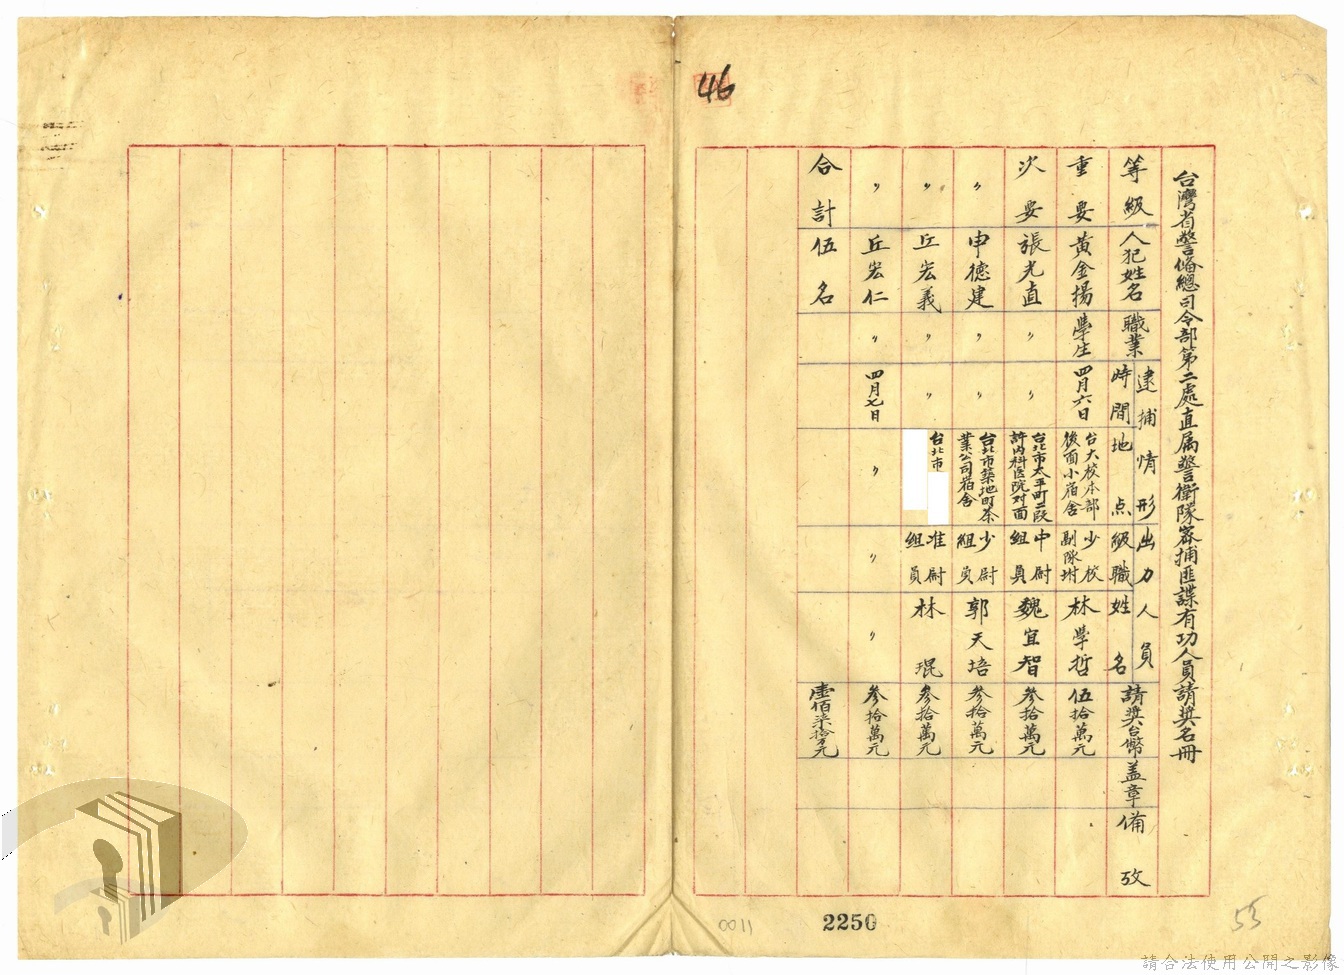 46
台灣省警備總司令部第二處直属警衛隊密捕匪諜有功人員請奬名冊
等級 人犯姓名 職業 逮捕情形 時間 地点 出力人員 級職 姓名 請奬台幣 盖章 備攷
重要 黃金揚 學生 四月六日 台大校本部後面小宿舍 少校副隊坿 林學哲 伍拾萬元
次要 張光直 〃 〃 台北市太平町二段許內科医院对面 中尉組員 魏宜智 參拾萬元
〃 申德建 〃 〃 台北市築地町茶業公司宿舍 少尉組員 郭天培 參拾萬元
〃 丘宏義 〃 〃 台北市 准尉組員 林琨 參拾萬元
〃 丘宏仁 〃 四月七日 〃 〃 〃 參拾萬元
合計 伍名 壹佰柒拾万元
0011
2250
55
請合法使用公開之影像